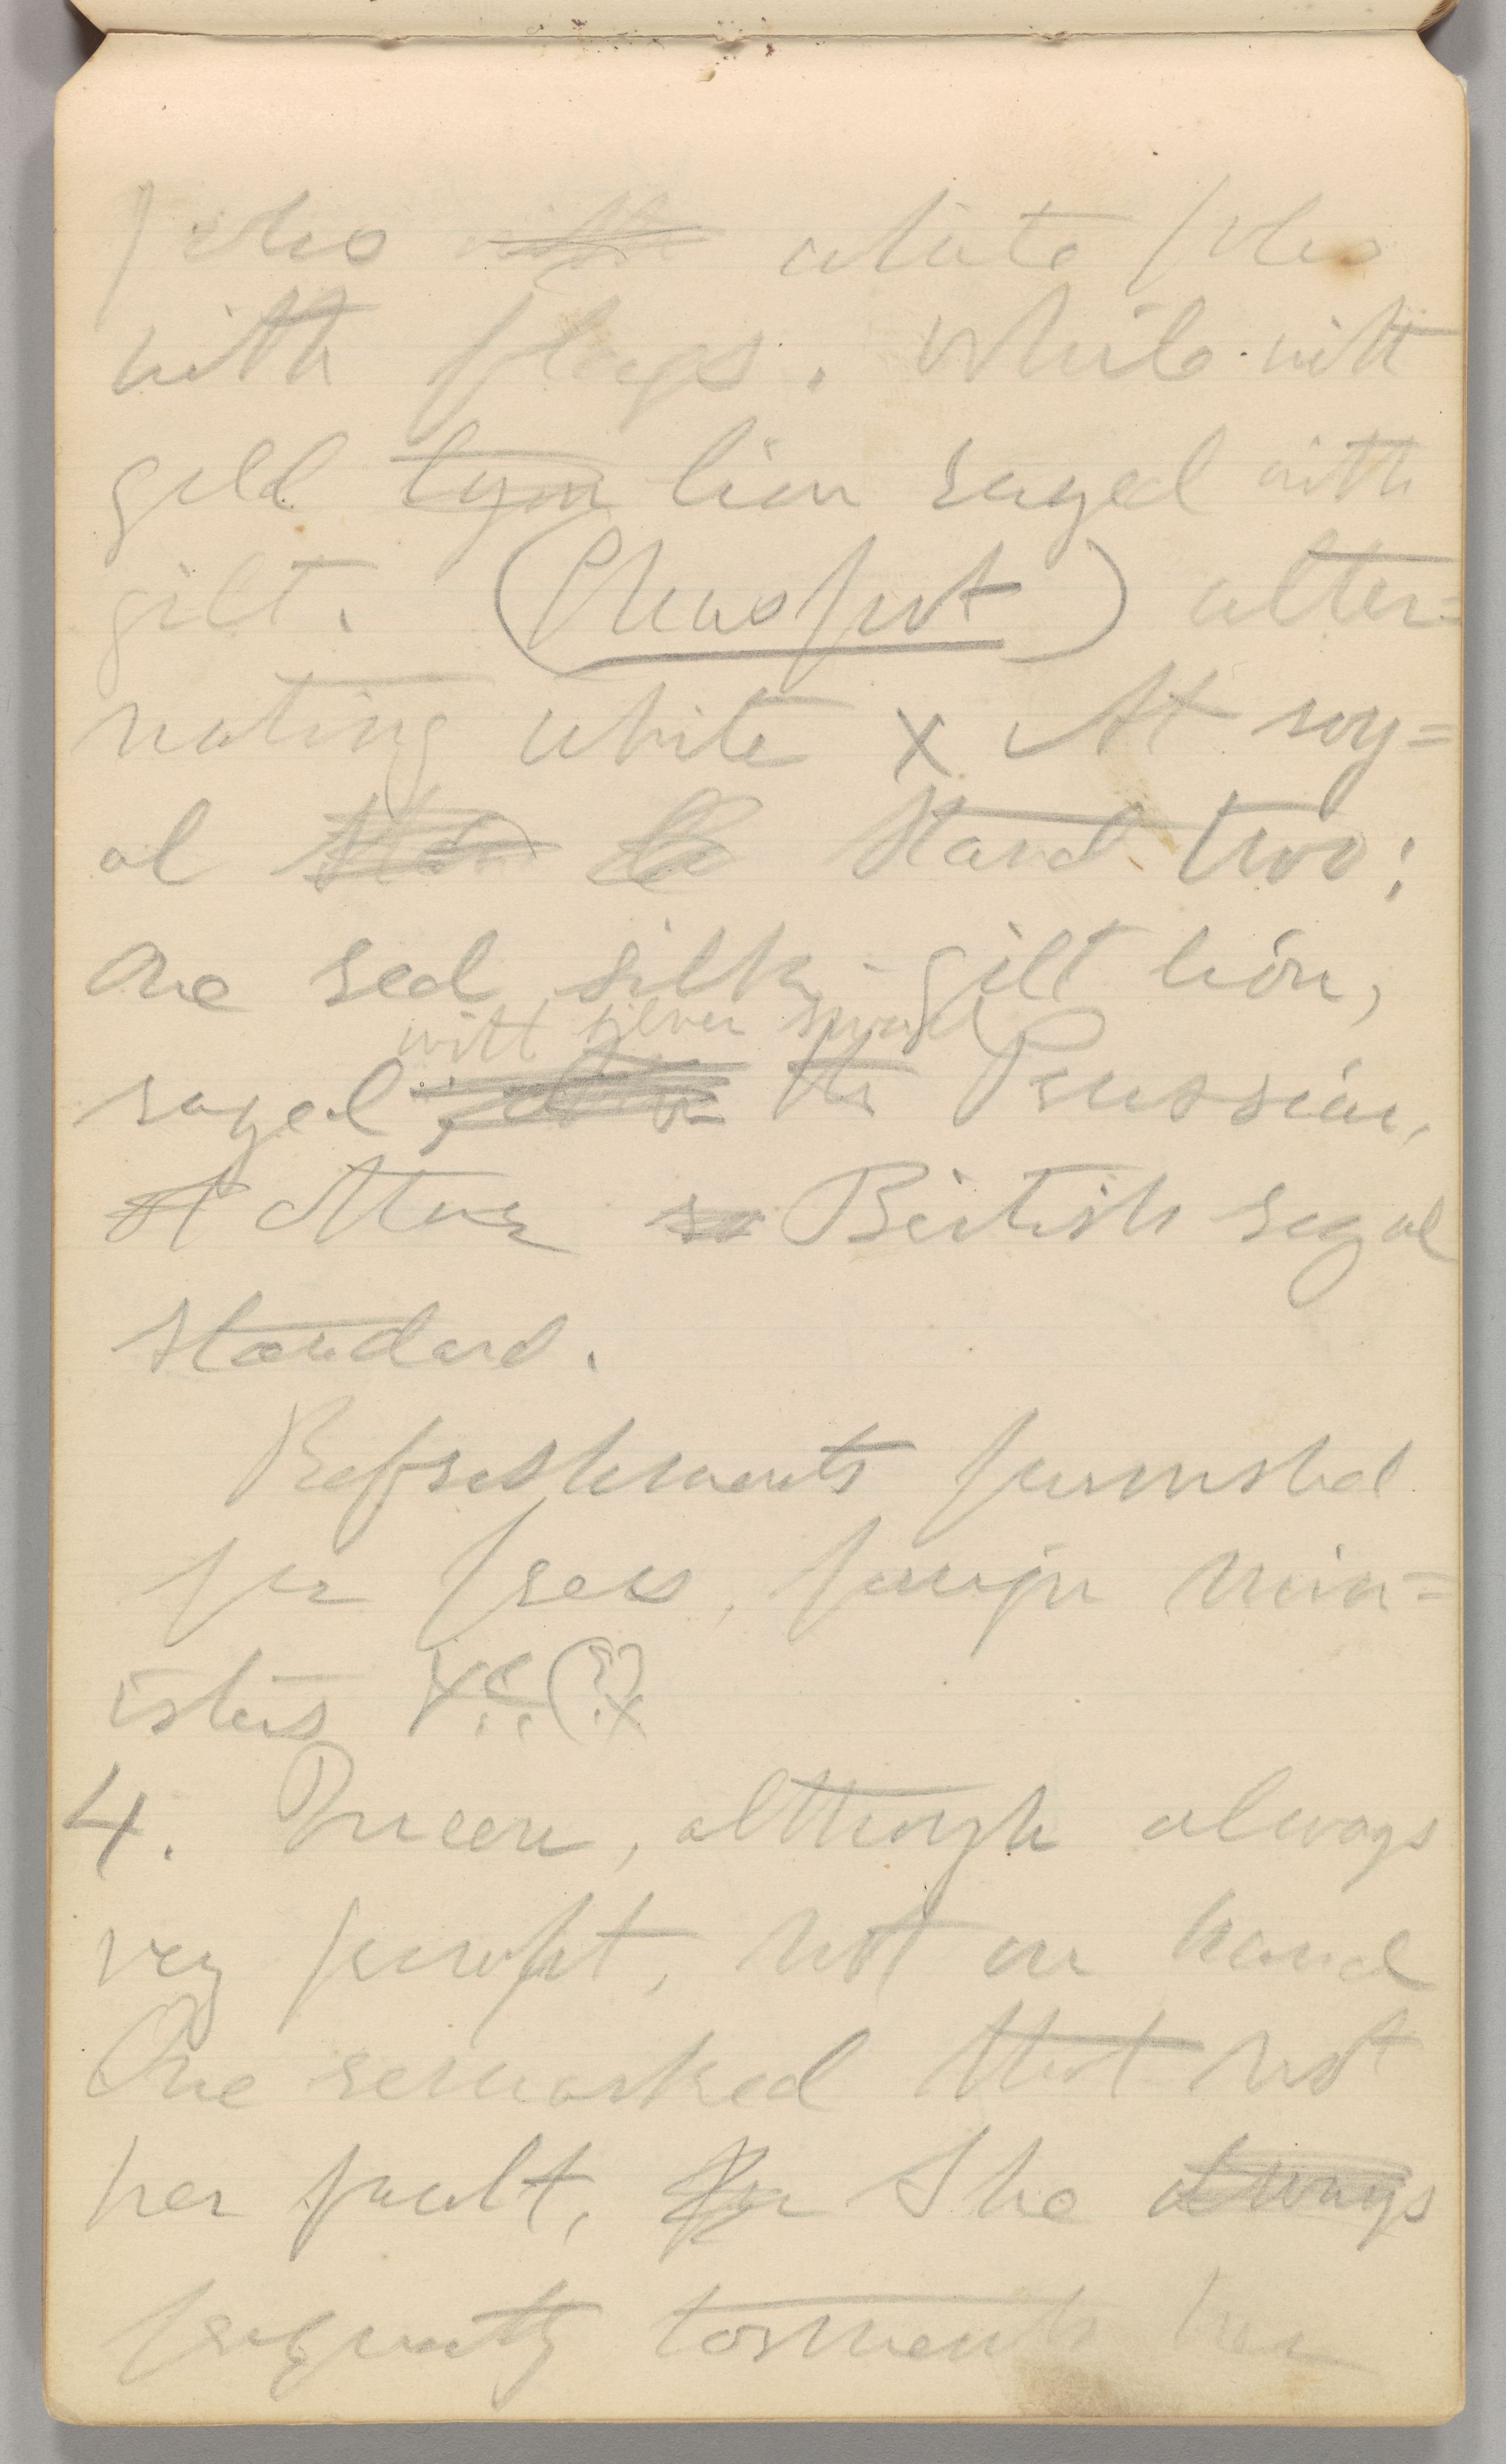 poles with white poles
with flags. White with
gold lyon lion rayed with
gilt. (Pleas put) alter=
nating white x At roy=
al stand two:
One red silk - gilt lion,
with silver sword
rayed, the Persian,
A Other so British regal
standard.
Refreshments furnished
for free, foreign min=
isters
4. Queen, although always
very prompt, not on hand
One remarked that not
her fault, for She always
frequently torments her